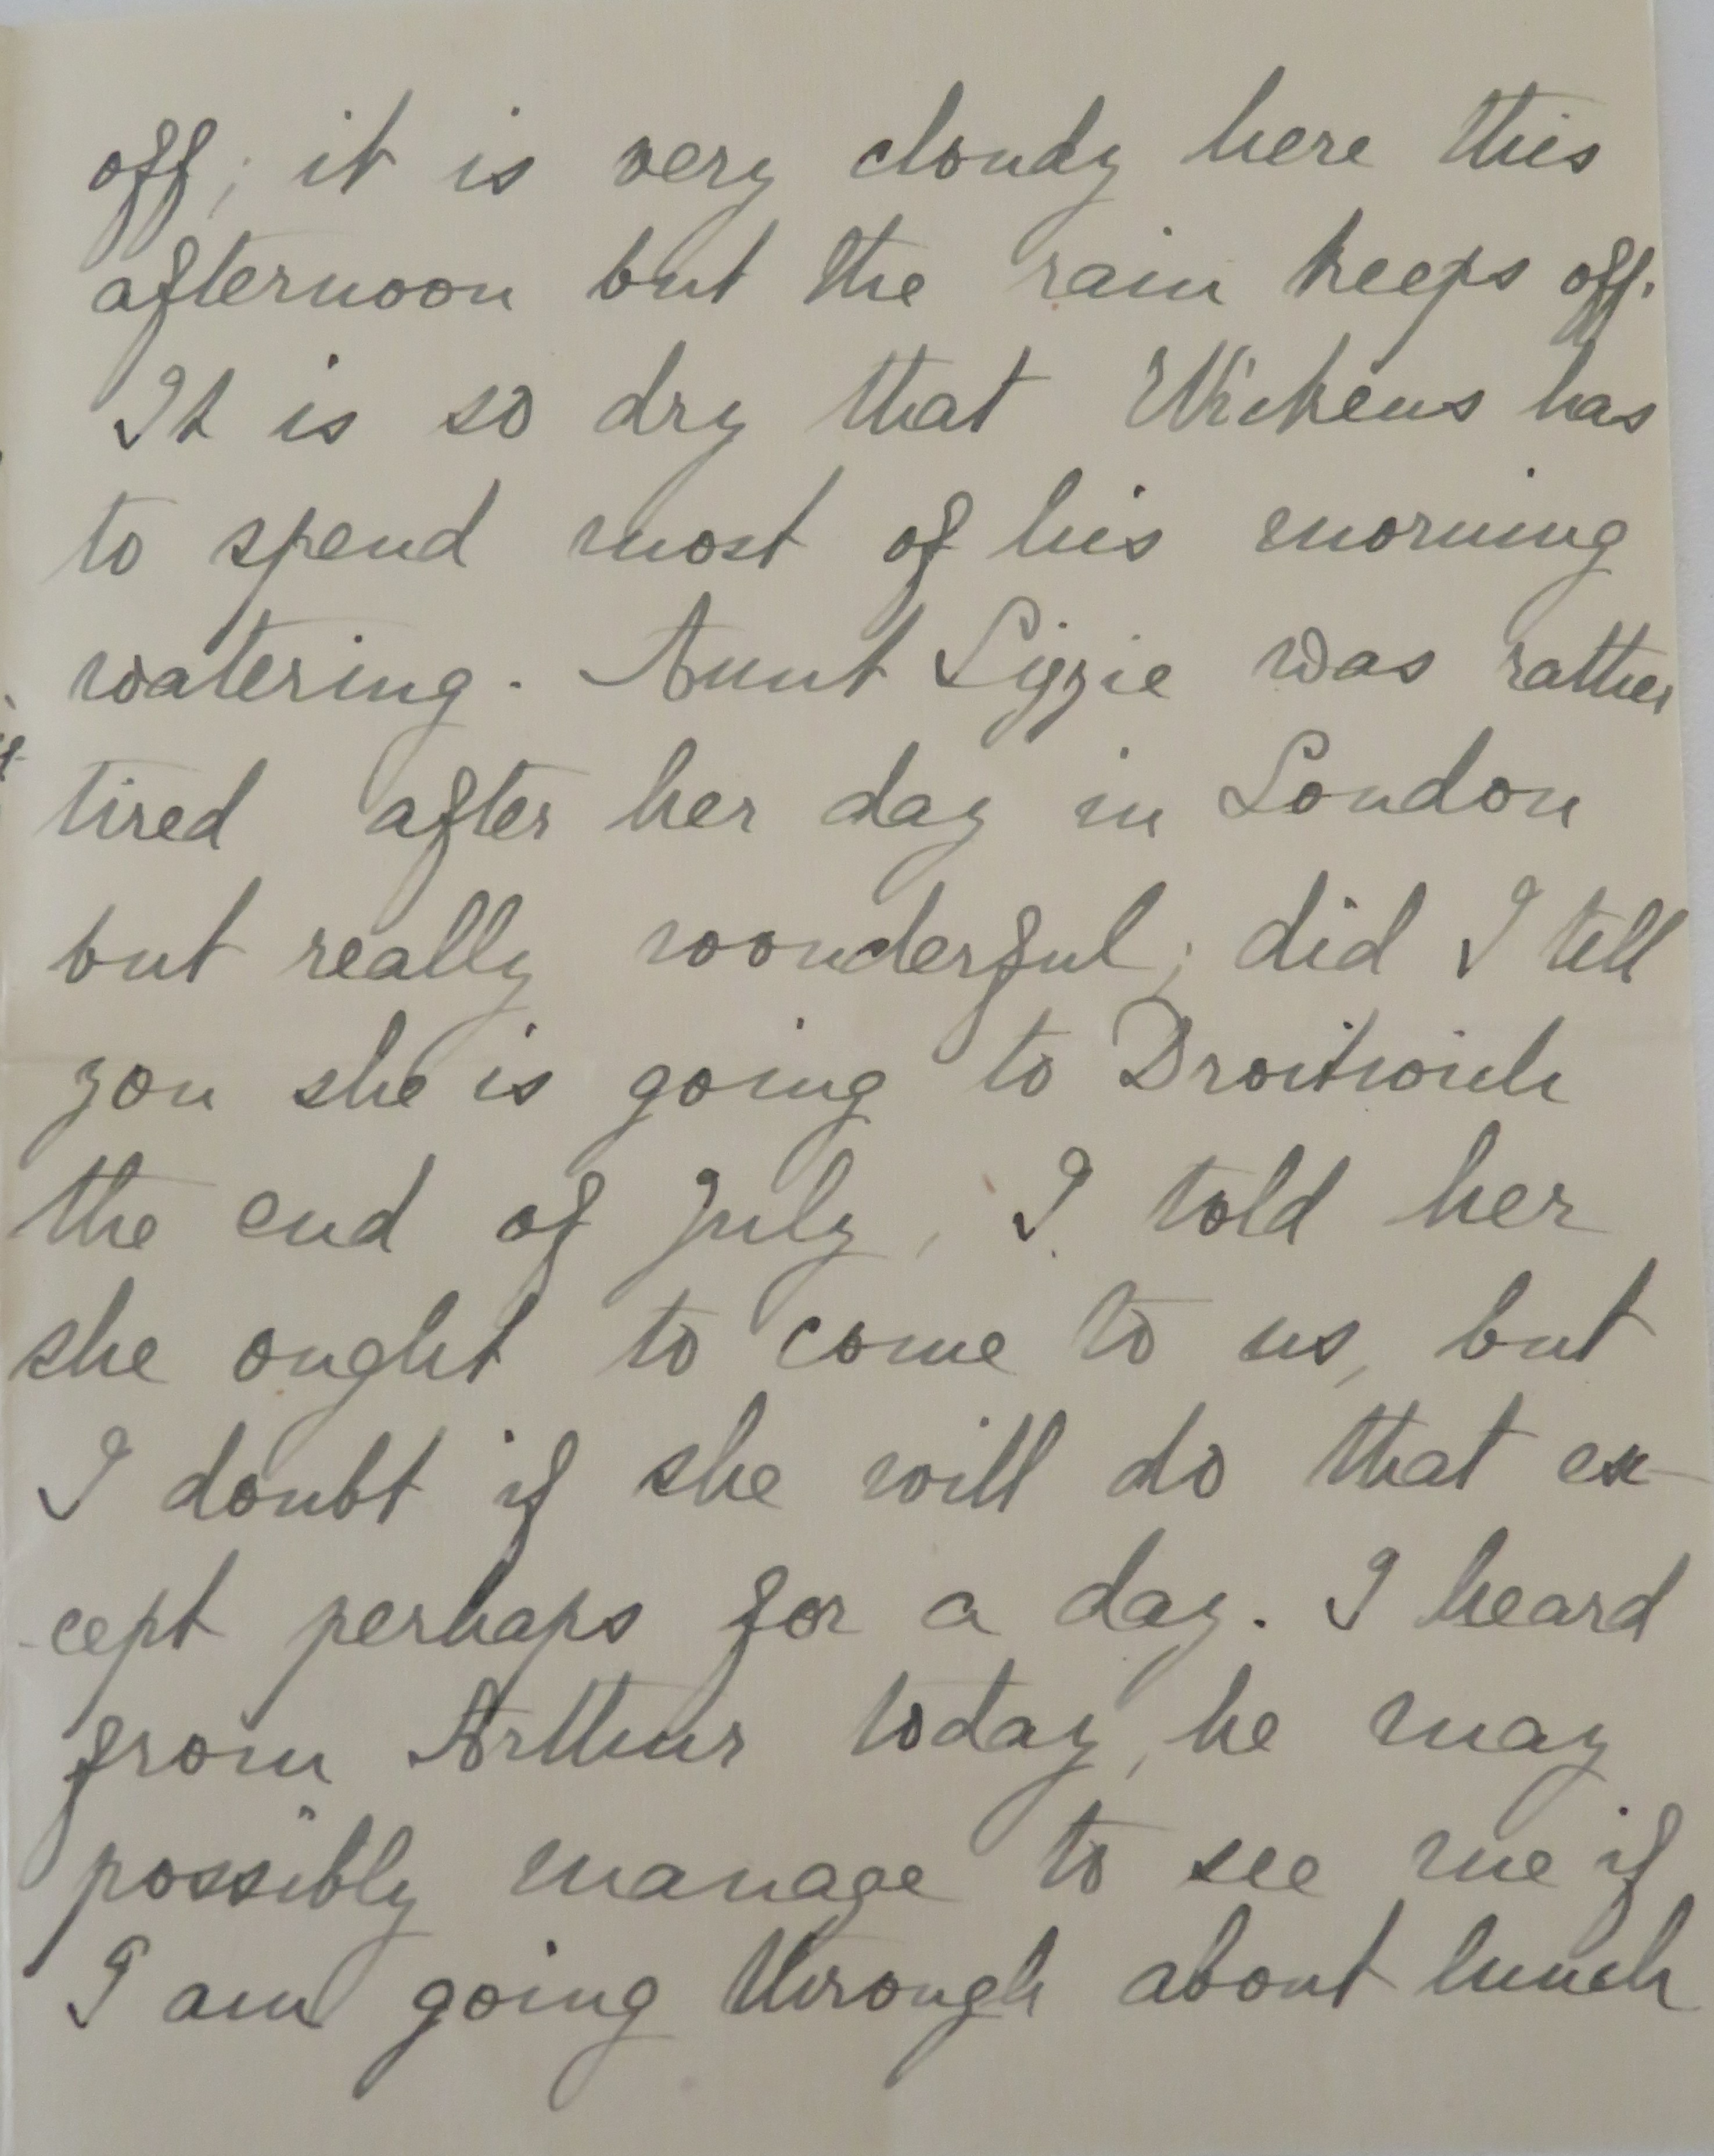 off; it is very cloudy here this
afternoon but the rain keeps off.
It is so dry that Wickens has
to spend most of his morning
watering. Aunt Lizzie was rather
tired after her day in London
but really wonderful; did I tell
you she is going to Droitwich
the end of July, I told her
she ought to come to us, but
I doubt if she will do that ex-
-cept perhaps for a day. I heard
from Arthur today, he may
possibly manage to see me if
I am going through about lunch